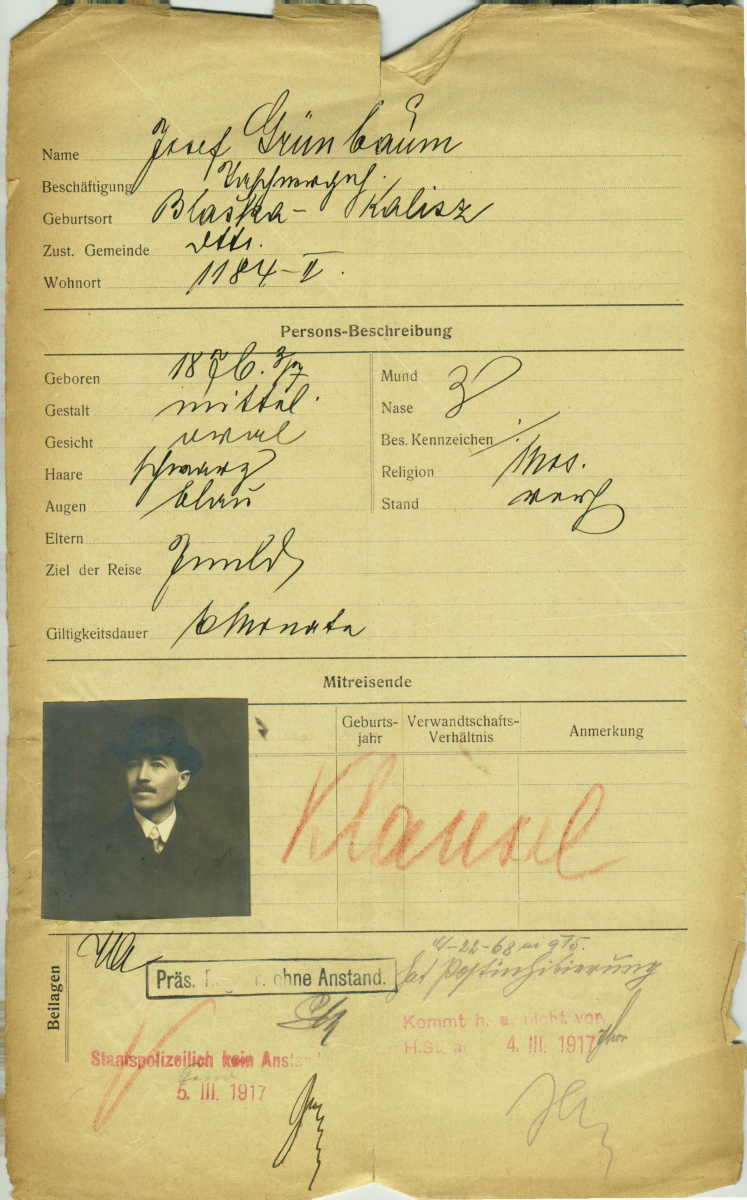 Name Josef Grünbaum
Beschäftigung
Geburtsort Blaška - Kalisz
Zust. Gemeinde dtto.
Wohnort 1184-II.
Persons-Beschreibung
Geboren 1876. 3/7
Gestalt mittel.
Gesicht oval
Haare schwarz
Augen blau
Eltern
Ziel der Reise Inland
Giltigkeitsdauer 6 Monate
Mund
Nase
Bes. Kennzeichen ./.
Religion Mos.
Stand verh
Mitreisende
Geburts-
jahr
Verwandtschafts-
Verhältnis
Anmerkung
Klausel
Beilagen
Präs. ohne Anstand.
Postinhibierung
Kommt h. a. nicht vor.
4. III. 1917
Staatspolizeilich kein Anstand
5. III. 1917